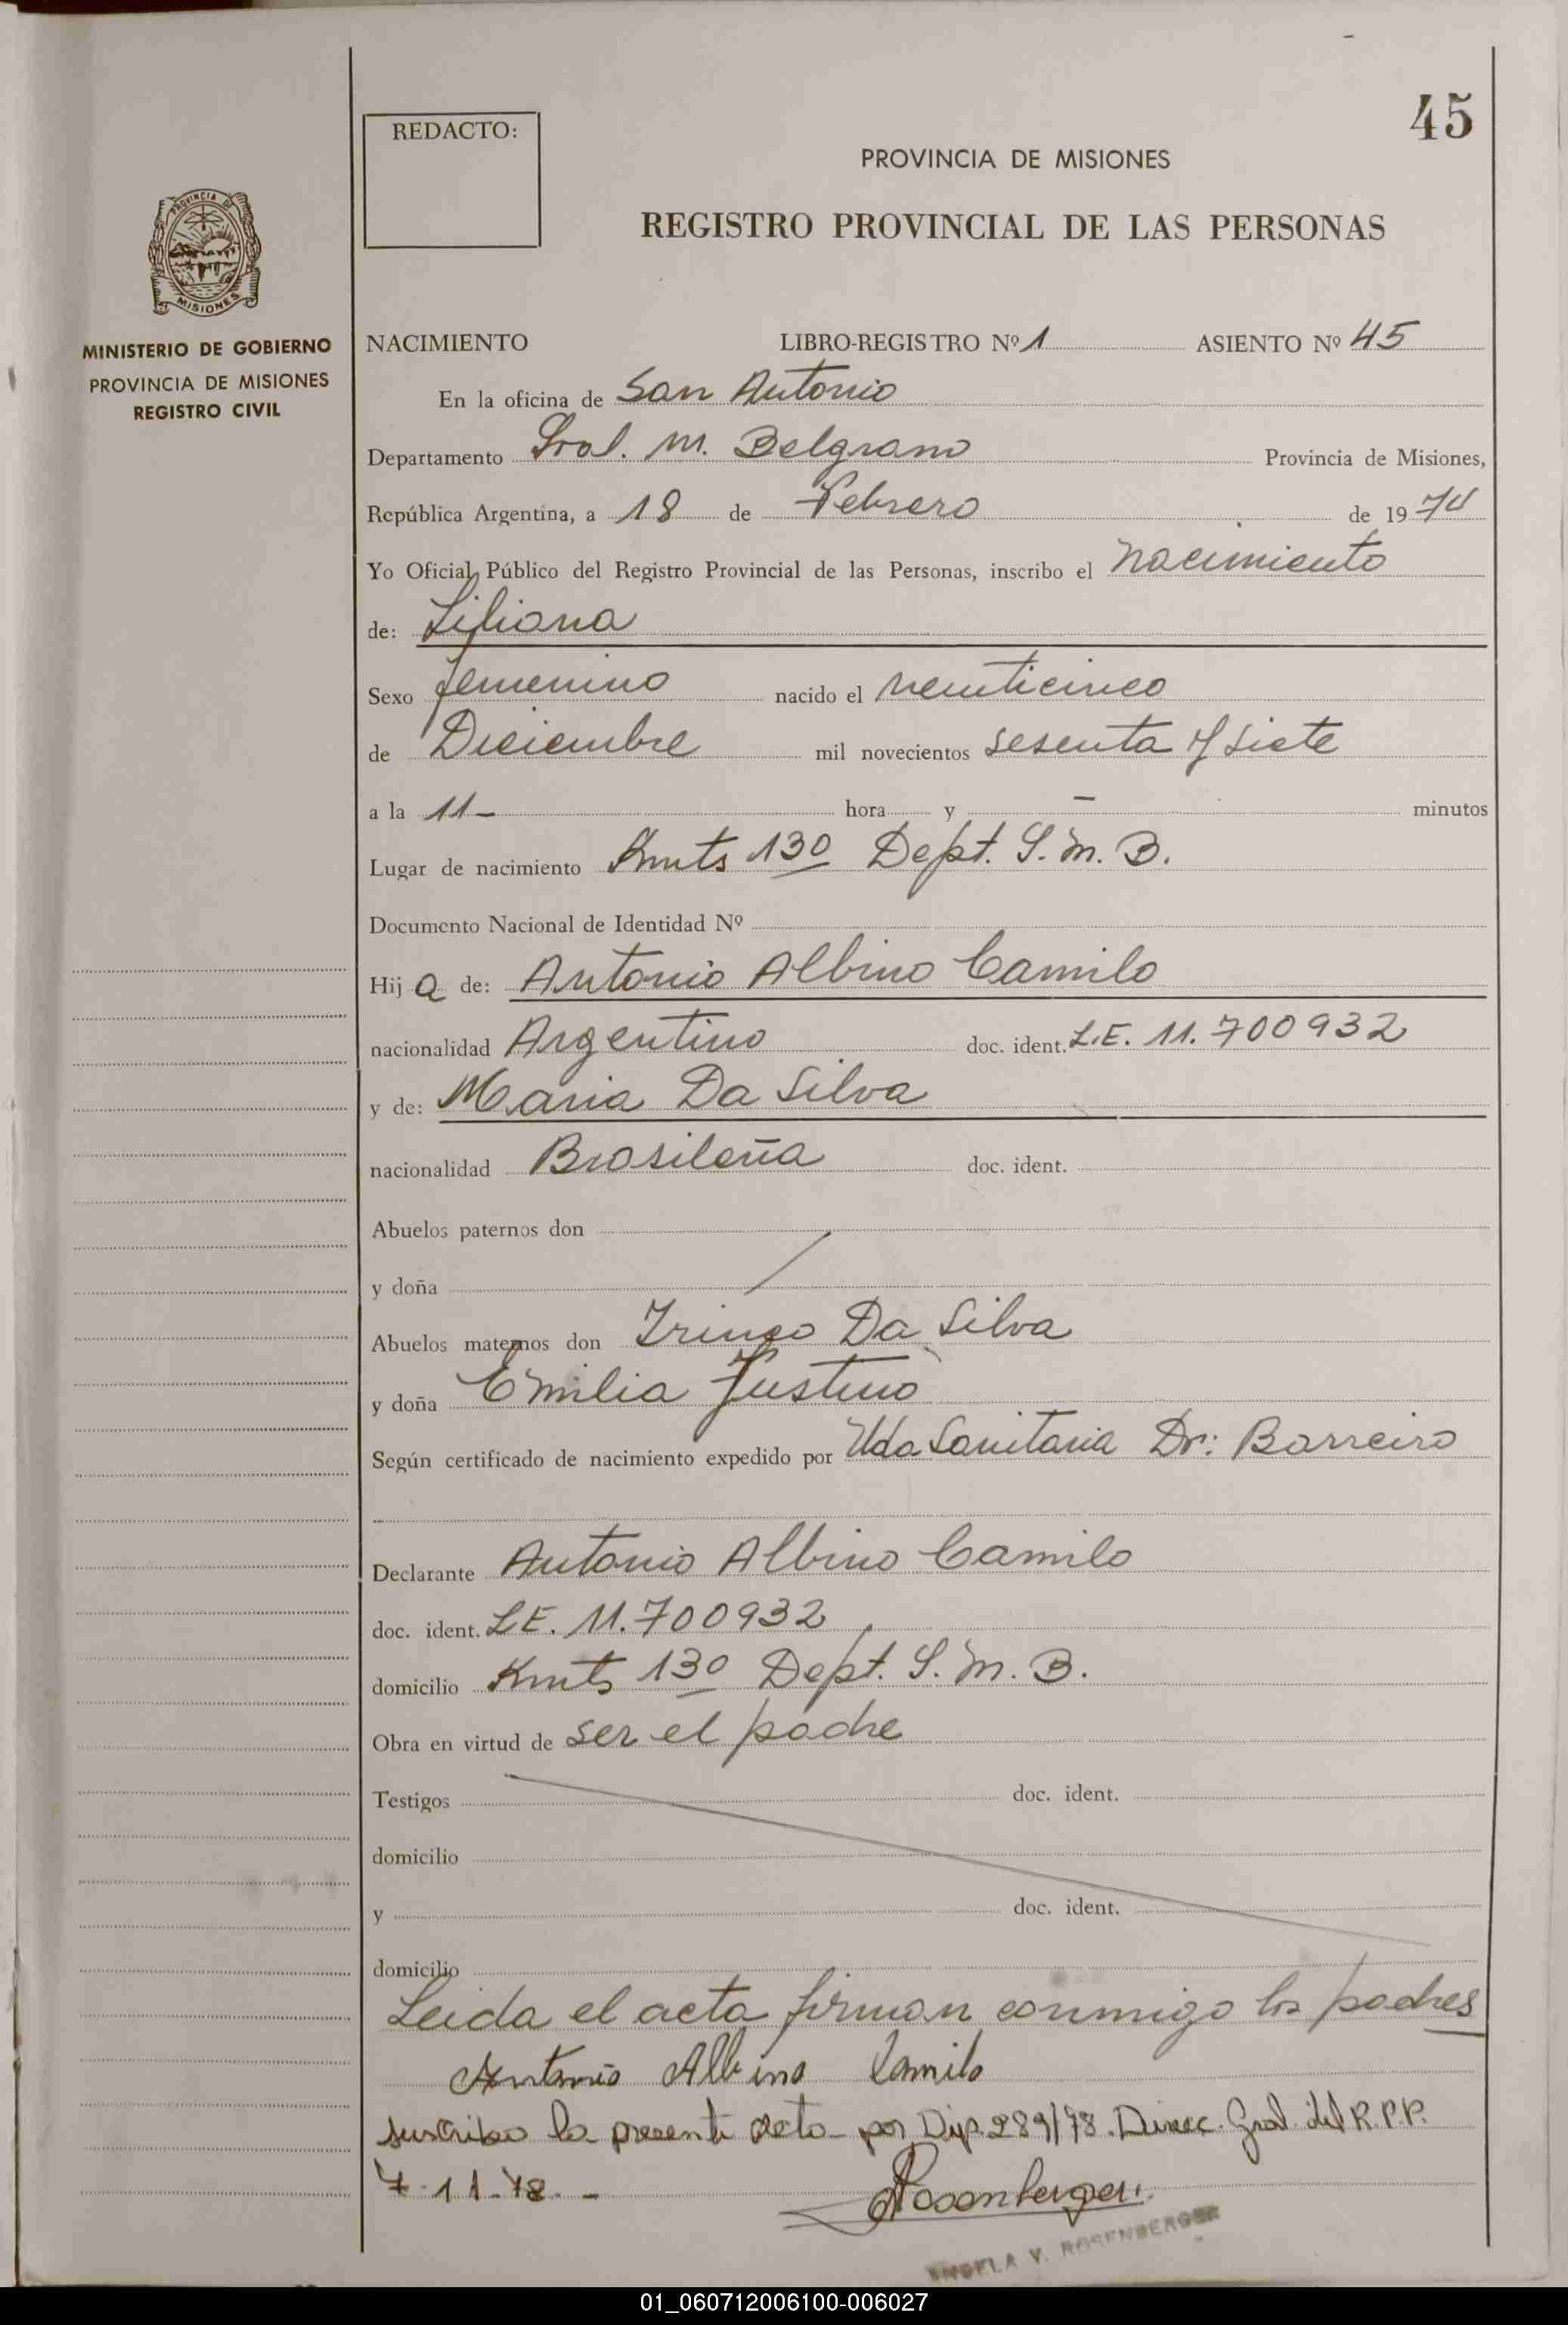 45
REDACTO:
PROVINCIA DE MISIONES
REGISTRO PROVINCIAL DE LAS PERSONAS
PROVINCIA DE
MISIONES
MINISTERIO DE GOBIERNO
PROVINCIA DE MISIONES
REGISTRO CIVIL
NACIMIENTO LIBRO-REGISTRO Nº 1 ASIENTO Nº 45
En la oficina de San Antonio
Departamento Gral. M. Belgrano Provincia de Misiones,
República Argentina, a 18 de Febrero de 1974
Yo Oficial Público del Registro Provincial de las Personas, inscribo el nacimiento
de: Liliana
Sexo femenino nacido el veinticinco
de Diciembre mil novecientos sesenta y siete
a la 11- hora y - minutos
Lugar de nacimiento Kmts 130 Dept. G. M. B.
Documento Nacional de Identidad Nº
Hija de: Antonio Albino Camilo
nacionalidad Argentino doc. ident. L.E. 11.700932
y de: Maria Da Silva
nacionalidad Brasileña doc. ident.
Abuelos paternos don
y doña
Abuelos maternos don Irineo Da Silva
y doña Emilia Justino
Según certificado de nacimiento expedido por Uda Sanitaria Dr: Barreiro
Declarante Antonio Albino Camilo
doc. ident. L.E. 11.700932
domicilio Kmts 130 Dept. G. M. B.
Obra en virtud de ser el padre
Testigos doc. ident.
domicilio
y doc. ident.
domicilio
Leida el acta firman conmigo los padres
Antonio Albino Camilo
suscribo la presente acta por Dip. 289/78. Direc. Gral. del R.P.P.
7-11-78.-
Rosenberger
ANGELA V. ROSENBERGER
01_060712006100-006027